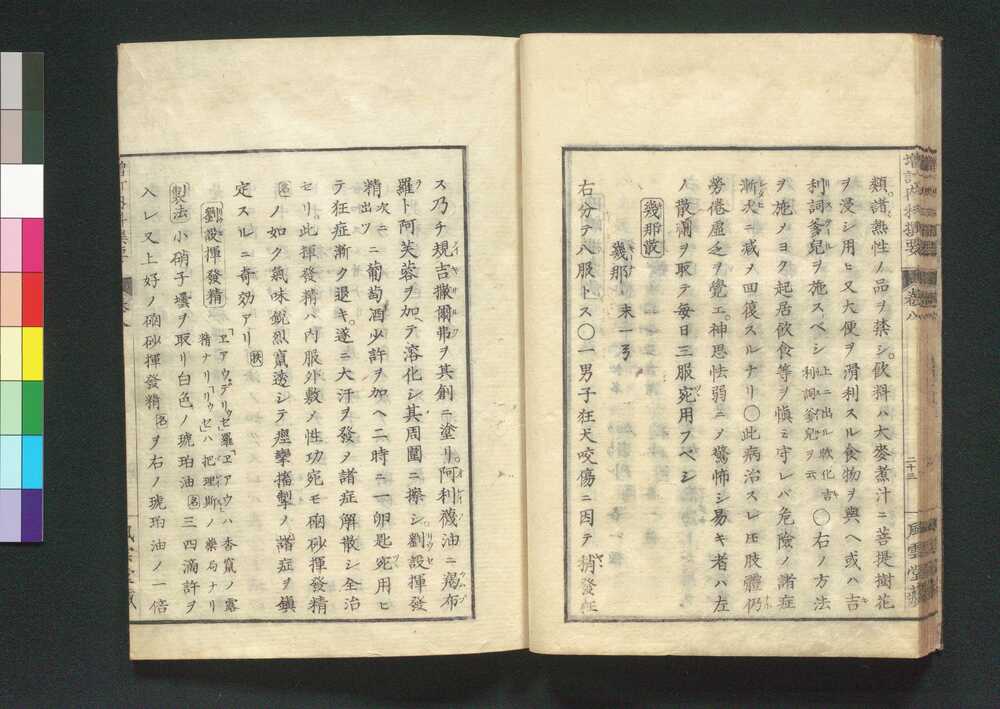 類。諸熱性ノ品ヲ禁シ。飲料ハ大麥煮汁ニ菩提樹花
ヲ浸シ用ヒ又大便ヲ滑利スル食物ヲ與ヘ或ハ吉
利詞爹兒ヲ施スベシ 上ニ出ル歇化古利詞爹兒ヲ云 ○右ノ方法
ヲ施メヨク起居飲食等ヲ愼ミ守レバ危險ノ諸症
漸〻ニ減メ回復スルナリ○此病治スレ𪜈肢體仍
勞倦虛乏ヲ覺エ。神思怯弱ニメ驚怖シ易キ者ハ左
ノ散劑ヲ取テ毎日三服宛用フベシ
幾那散
幾那 末一弓
右分テ八服トス○一男子狂犬咬傷ニ因テ稍發症
二十三
風雲堂藏
ス乃チ規吉撒爾弗ヲ其創ニ塗リ。阿利襪油ニ羯布
羅ト阿芙蓉ヲ加テ溶化シ其周圍ニ擦シ。劉設揮發
精 次ニ出ツ ニ葡萄酒少許ヲ加ヘ二時ニ一卵匙宛用ヒ
テ狂症漸ク退キ。遂ニ大汗ヲ發メ諸症解散シ全治
セリ此揮發精ハ内服外敷メ性功宛モ硇砂揮發精
名ノ如ク氣味鋭烈竄透シテ痙攣搐掣ノ諸症ヲ鎭
定スルニ奇効アリ
劉設揮發精 「ヱアウデリウセ」羅「ヱアウ」ハ香竄ノ露精ナリ「リウセ」ハ把理斯ノ藥局ナリ
製法 小硝子壜ヲ取リ白色ノ琥珀油 名 三四滴許ヲ
入レ又上好ノ硇砂揮發精 名 ヲ右ノ琥珀油ノ一倍